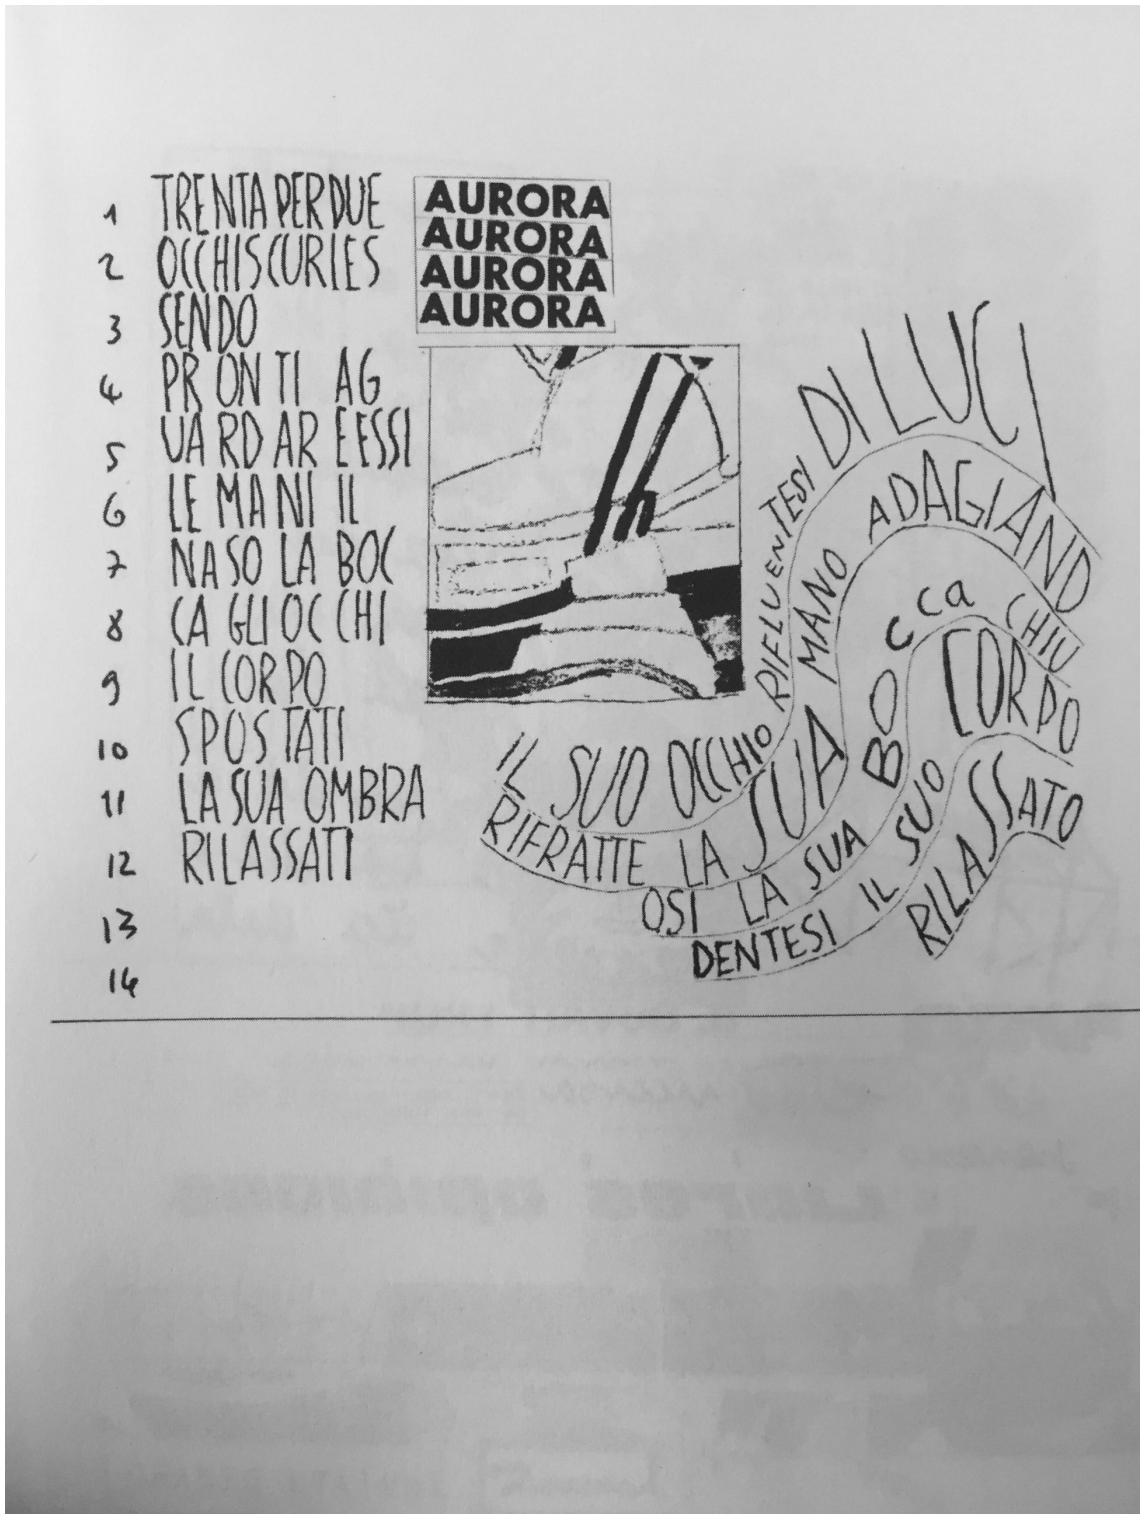 1 TRENTA PER DUE
2 OCCHISCURIES
3 SENDO
4 PRONTI AG
5 UARDAR EESSI
6 LE MANI IL
7 NASO LA BOC
8 CA GLI OCCHI
9 IL CORPO
10 SPOSTATI
11 LA SUA OMBRA
12 RILASSATI
13
14
AURORA
AURORA
AURORA
AURORA
IL SUO OCCHIO RIFLUENTESI DI LUCI
RIFRATTE LA SUA MANO ADAGIAND
OSI LA SUA BOCCA CHIU
DENTESI IL SUO CORPO
RILASSATO